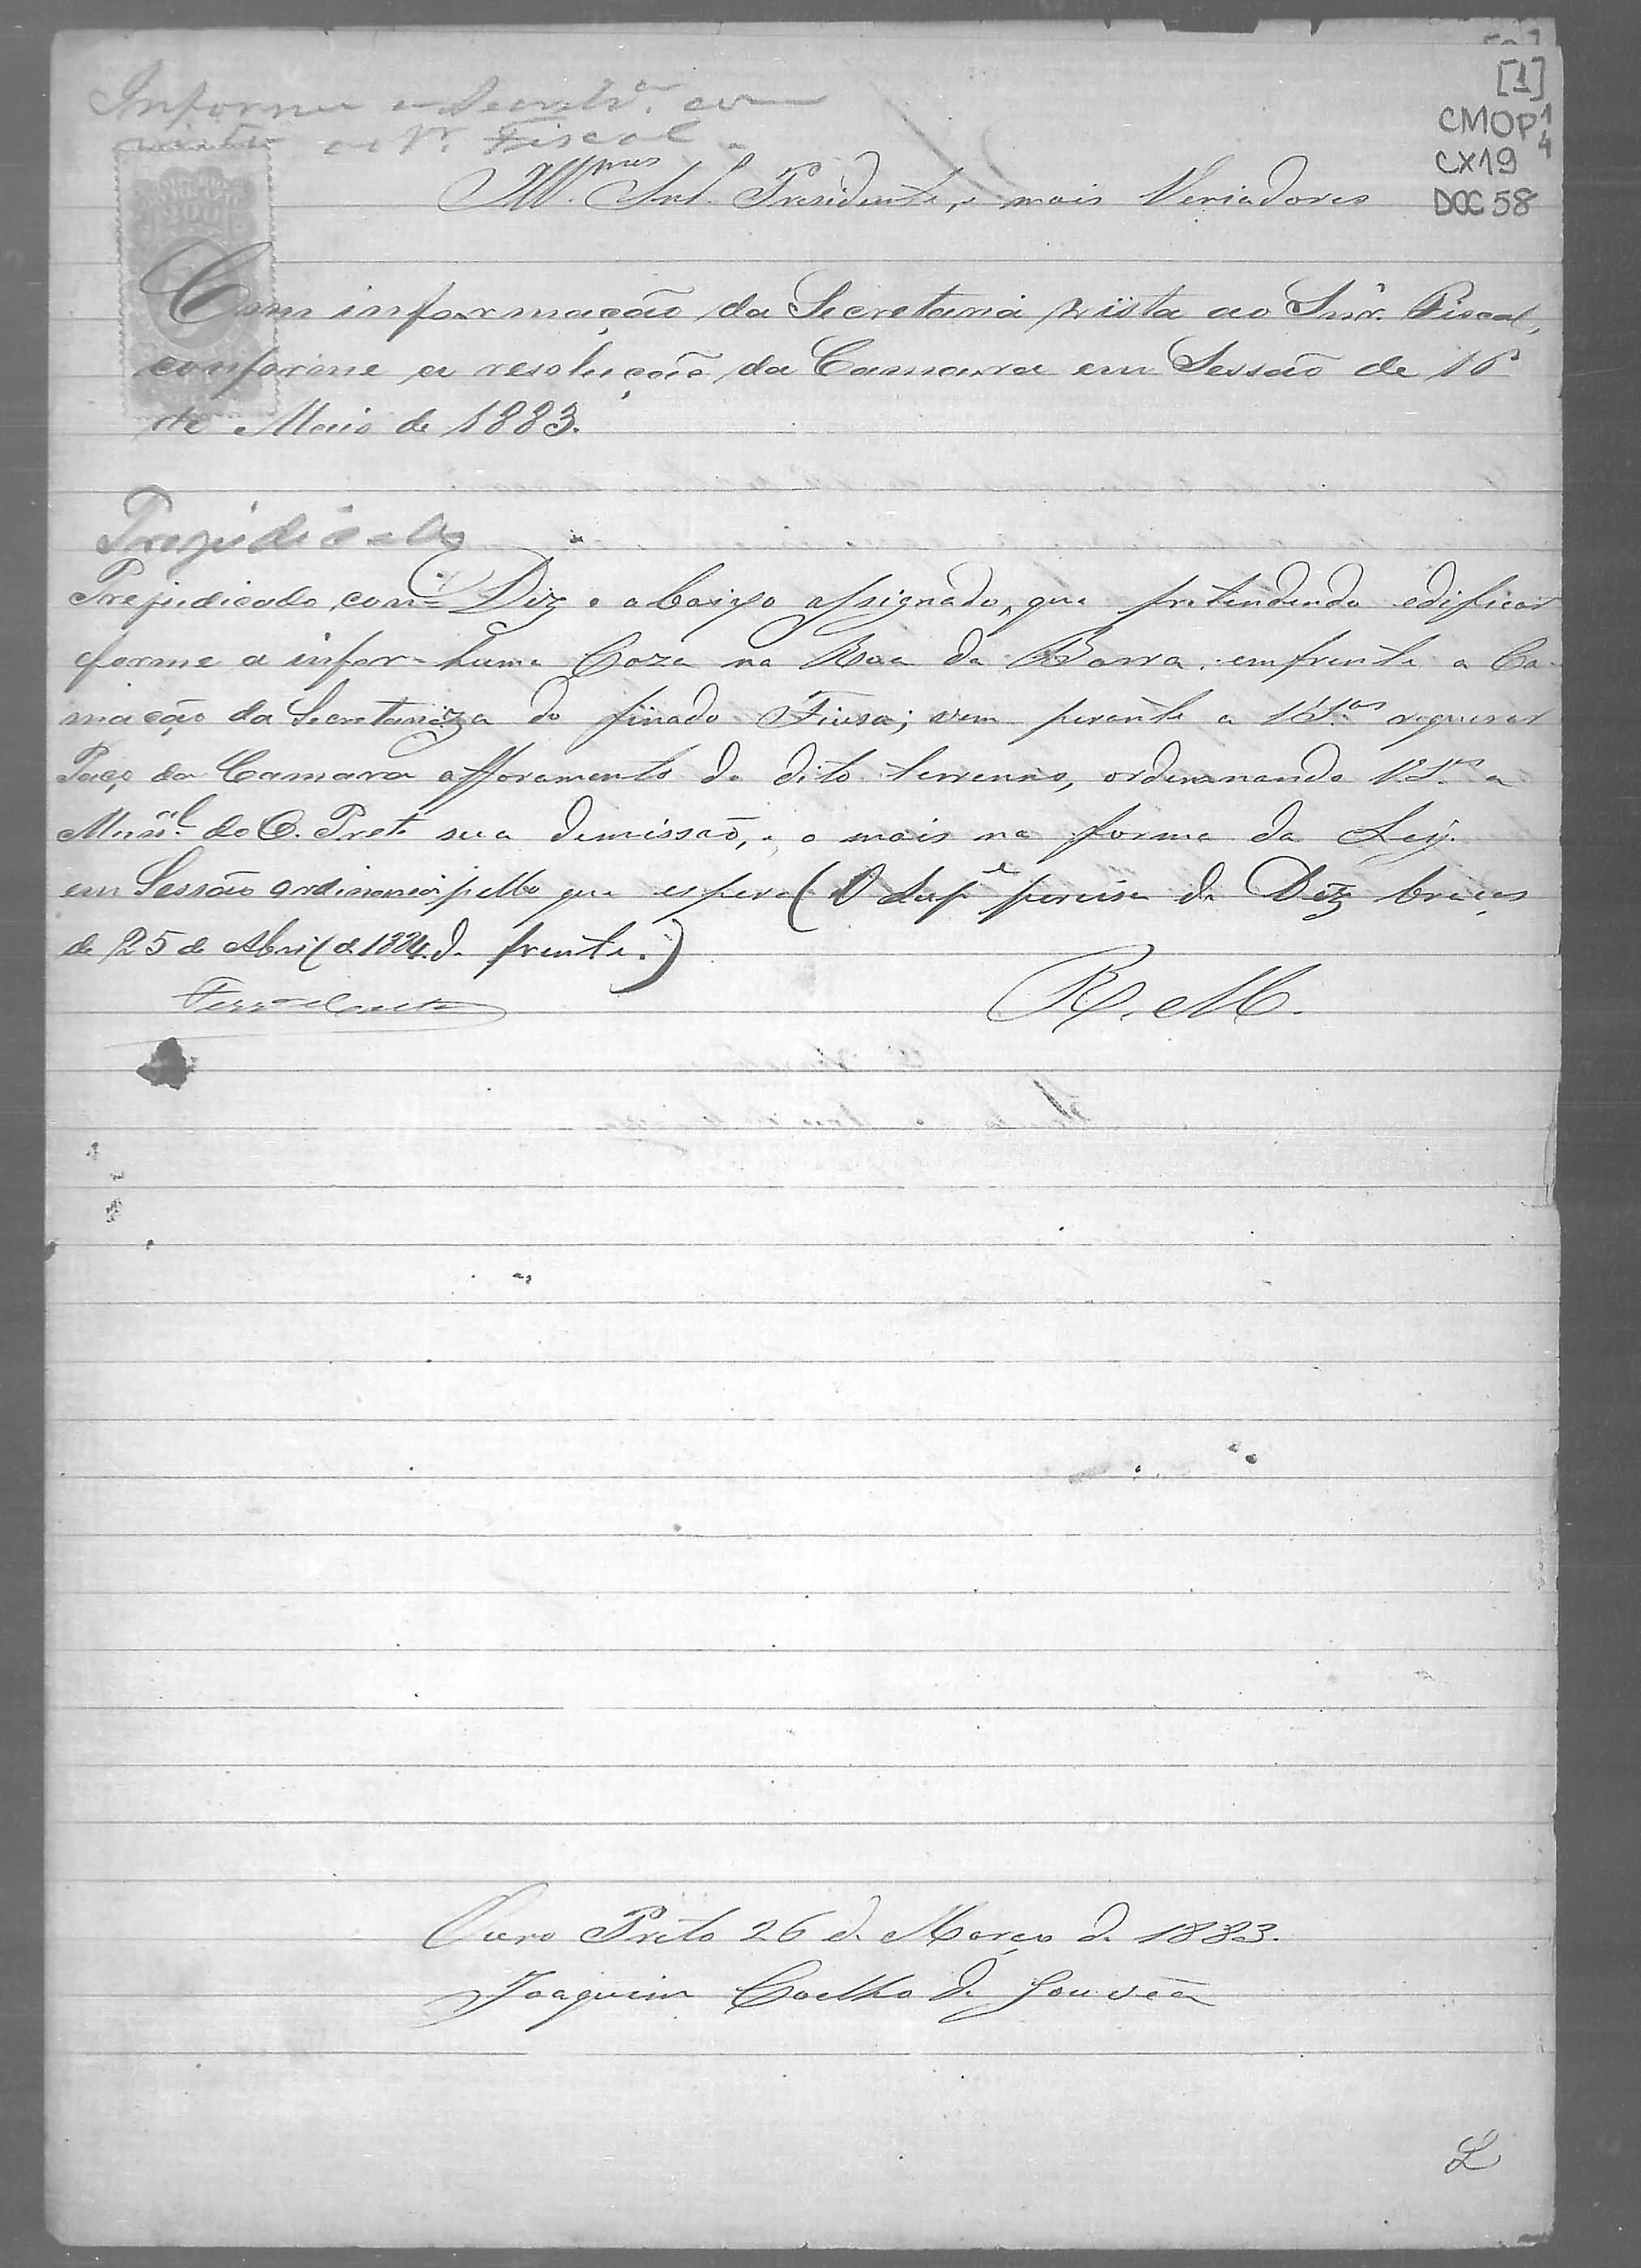 [1]
CMOP 1
4
CX19
DOC 58
Informe a Secretrª. com
vista ao Sr. Fiscal.
Illmos. Snrs. Presidente, e mais Veriadores
200
Com informação da Secretaria vista ao Snr. Fiscal,
conforme a resolução da Camara em Sessão de 16
de Maio de 1883.
Prejudicado
Prejudicado, con-
forme a infor-
mação da Secretaria.
Paço da Camara
Munal. do O. Preto
em Sessão ordinaria
de 25 de Abril de 1884.
Diz o abaixo assignado, que pretendendo edificar
huma Caza na Rua da Barra, emfrente a Ca-
za do finado Fiusa; vem perante a VSas requerer
afforamento do dito terrenno, ordennando VSas a
sua demissão, e o mais na forma da Ley.
pello que espera (O Supe precisa de Dez braças
de frente.)
R. M.
Ouro Preto 26 de Março de 1883.
Joaquim Coelho de Gouvêa